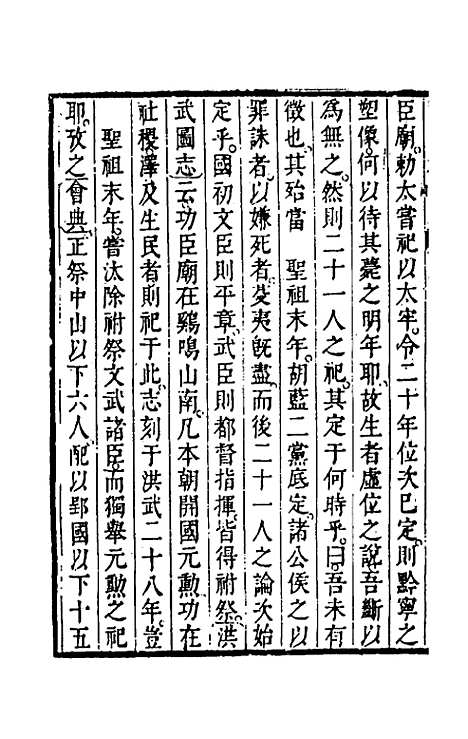 臣廟。勅太嘗祀以太牢。令二十年位次已定。則黔寧之
塑像。何以待其薨之明年耶。故生者虛位之說。吾斷以
爲無之。然則二十一人之祀。其定于何時乎。曰。吾未有
徵也。其殆當　聖祖末年。胡藍二黨底定。諸公侯之以
罪誅者。以嫌死者。芟夷旣盡。而後二十一人之論次始
定乎。國初文臣則平章。武臣則都督指揮。皆得祔祭。洪
武圖志云。功臣廟在鷄鳴山南。凡本朝開國元勲。功在
社稷。澤及生民者則祀于此。志刻于洪武二十八年。豈
　聖祖末年。嘗汰除祔祭文武諸臣。而獨舉元勲之祀
耶。攷之會典。正祭中山以下六人。配以郢國以下十五